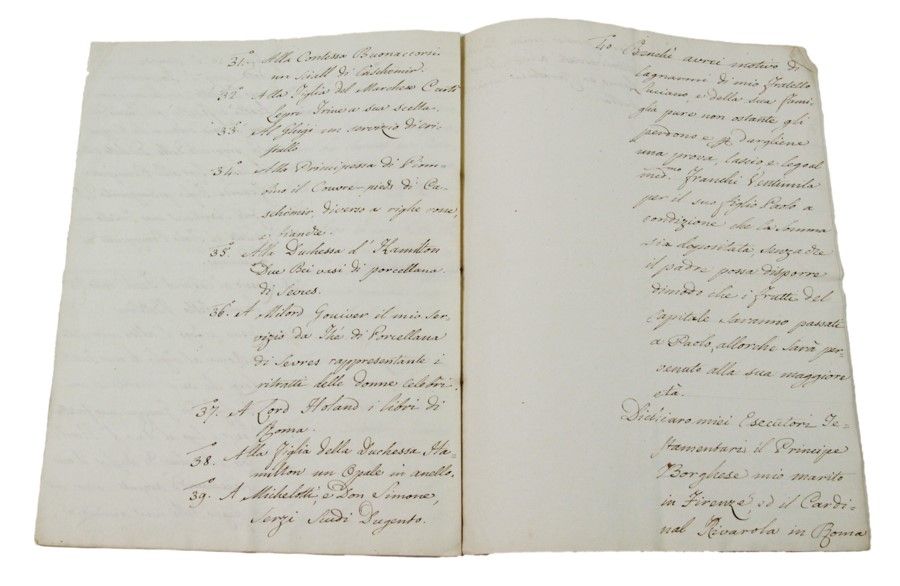 31.° Alla Contessa Buonaccorsi
un Sciall di Caschemir.
32.° Alla Figlia del Marchese Curti
Lepri Trine a sua scelta.
33.° Al Gligi un servizio di cri-
stallo
34.° Alla Principessa di Piom-
bino il Couvre-pieds di Ca-
schemir, diverso a righe rosse,
e bianche.
35.° Alla Duchessa d'Hamilton
Due Bei vasi di porcellana
di Sevres.
36.° A Milord Gouiver il mio Ser-
vizio da Thé di Porcellana
di Sevres rappresentante i
ritratti delle donne celebri.
37. A Lord Holand i libri di
Roma.
38. Alla figlia della Duchessa Ha-
milton un Opale in anello.
39.° A Michelotti, e Don Simone,
Sergi Scudi Dugento.
40.° Benchè avrei motivo di
lagnarmi di mio fratello
Luciano, e della sua fami-
glia pure non ostante gli
perdono e p. dargliene
una prova, lascio e lego al
med.mo Franchi Ventimila
per il suo figlio Paolo a
condizione che la Somma
sia depositata, senza che
il padre possa disporre
dimodo che i frutti del
Capitale saranno passati
a Paolo, allorchè sarà per-
venuto alla sua maggiore
età.
Dichiaro miei Esecutori Te-
stamentari il Principe
Borghese mio marito
in Firenze, ed il Cardi-
nal Rivarola in Roma